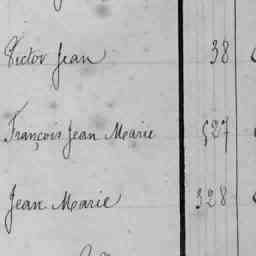 Victor Jean 38
François Jean Marie 527
Jean Marie 328